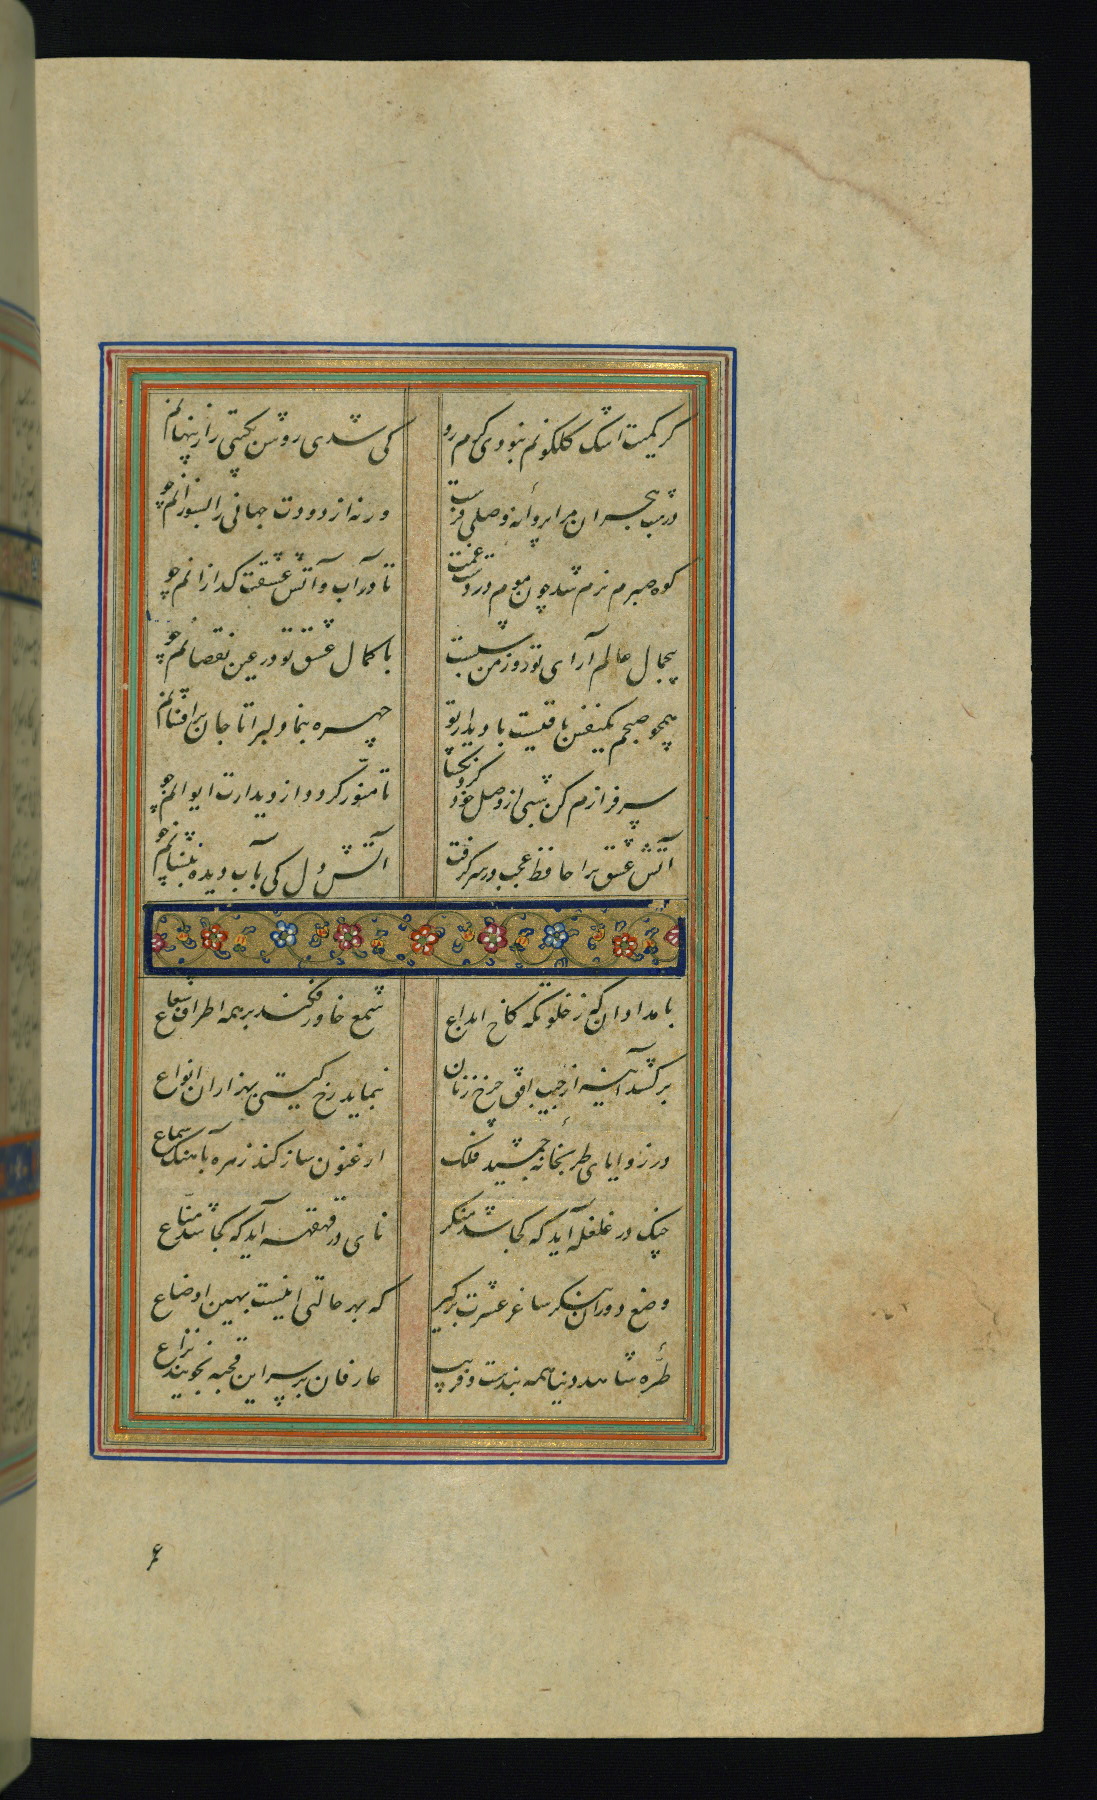 گر کمیت اشک گلگونم نبودی گرم رو کی شدی روشن بگیتی راز پنهانم
در شب هجران مرا پروانهٔ وصلی فرست ورنه از دودت جهانی را بسوزانم چو
کوه صبرم نرم شد چون موم در دست غمت تا در آب و آتش عشقت گدازانم چو
بیجمال عالم آرای تو روز من شبست با کمال عشق تو در عین نقصانم چو
همچو صبحم یکنفس باقیست با دیدار تو چهره بنما دلبرا تا جان برافشانم
سرفرازم کن شبی از وصل خود تا منور گردد از دیدارت ایوانم چو
آتش عشق ترا حافظ عجب در سر گرفت آتش دل کی بآب دیده بنشانم چو
بامدادان که ز خلوتگه کاخ ابداع شمع خاور فکند بر همه اطراف شعاع
برکشد آینه از جیب افق چرخ زنان بنماید رخ گیتی بهزاران انواع
در زوایای طربخانهٔ جمشید فلک ارغنون ساز کند زهره بآهنگ سماع
چنگ در غلغله آید که کجا شد منکر نای در قهقهه آید که کجا شد مناع
وضع دوران بنگر ساغر عشرت برگیر که بهر حالتی اینست بهین اوضاع
طرهٔ شاهد دنیا همه بندست و فریب عارفان بر سر این قحبه نجویند نزاع